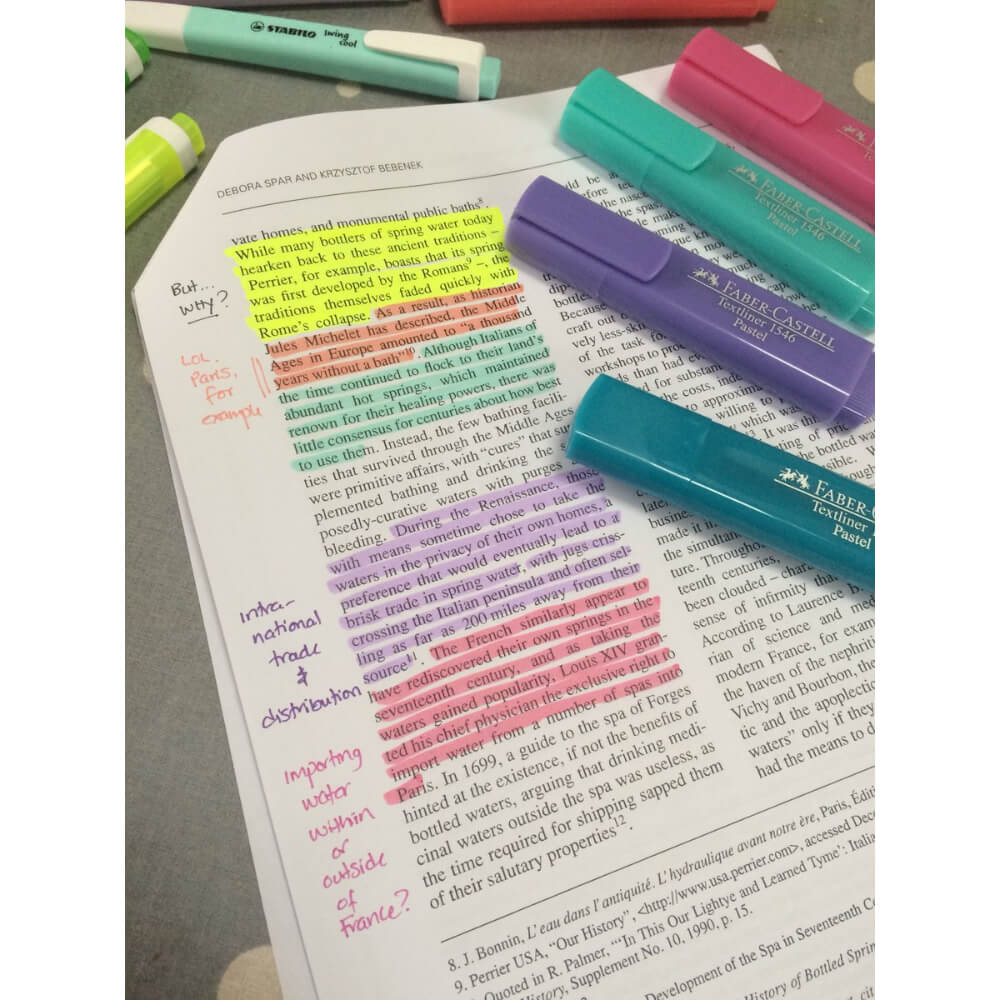 STABILO swing cool
DEBORA SPAR AND KRZYSZTOF BEBENEK
vate homes, and monumental public baths8.
While many bottlers of spring water today
hearken back to these ancient traditions –
Perrier, for example, boasts that its spring
was first developed by the Romans9 –, the
traditions themselves faded quickly with
Rome's collapse. As a result, as historian
Jules Michelet has described, the Middle
Ages in Europe amounted to "a thousand
years without a bath"10. Although Italians of
the time continued to flock to their land's
abundant hot springs, which maintained
renown for their healing powers, there was
little consensus for centuries about how best
to use them. Instead, the few bathing facili-
ties that survived through the Middle Ages
were primitive affairs, with "cures" that sup
plemented bathing and drinking the
posedly-curative waters with purges
bleeding. During the Renaissance, those
with means sometime chose to take the
waters in the privacy of their own homes, a
preference that would eventually lead to a
brisk trade in spring water, with jugs criss-
crossing the Italian peninsula and often sel-
ling as far as 200 miles away from their
source11. The French similarly appear to
have rediscovered their own springs in the
seventeenth century, and as taking the
waters gained popularity, Louis XIV gran-
ted his chief physician the exclusive right to
import water from a number of spas into
Paris. In 1699, a guide to the spa of Forges
hinted at the existence, if not the benefits of
bottled waters, arguing that drinking medi-
cinal waters outside the spa was useless, as
the time required for shipping sapped them
of their salutary properties12.
But...
why?
LOL.
Paris,
for
example
intra-
national
trade
&
distribution
importing
water
within
or
outside
of
France?
uld be
Because
bottles
craft out
vely less-sk
of the task
workshops to pro
than had
for substan
the costs, ind
to approxima
willing to
which was
It was th
ting of pric
the bottled wa
busine
made it in
the simultan
ture. Throughou
teenth centuries,
been clouded – char
sense of infirmity tha
According to Laurence B.
rian of science and med
modern France, for exam
the haven of the nephriti
Vichy and Bourbon, the
tic and the apoplectic
waters" only if they
had the means to d
8. J. Bonnin, L'eau dans l'antiquité. L'hydraulique avant notre ère, Paris, Éditi
9. Perrier USA, "Our History", <http://www.usa.perrier.com>, accessed Dece
Quoted in R. Palmer, "'In This Our Lightye and Learned Tyme': Italia
History, Supplement No. 10, 1990, p. 15.
Development of the Spa in Seventeenth Ce
History of Bottled Spring
FABER-CASTELL
Textliner 1546
Pastel
FABER-CASTELL
Textliner 1546
Pastel
FABER-C
Textliner
Pastel